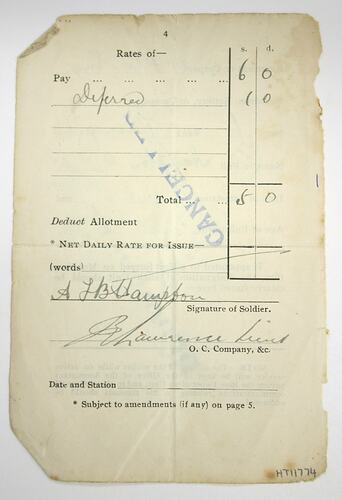 4
Rates of— s. d.
Pay ... ... ... ... 6 0
Deferred 1 0
CANCELLED
Total ... ... 5 0
Deduct Allotment
* NET DAILY RATE FOR ISSUE—
(words)
A J B Hampton
Signature of Soldier.
Lawrence Lieut
O. C. Company, &c.
Date and Station
* Subject to amendments (if any) on page 5.
HT11774